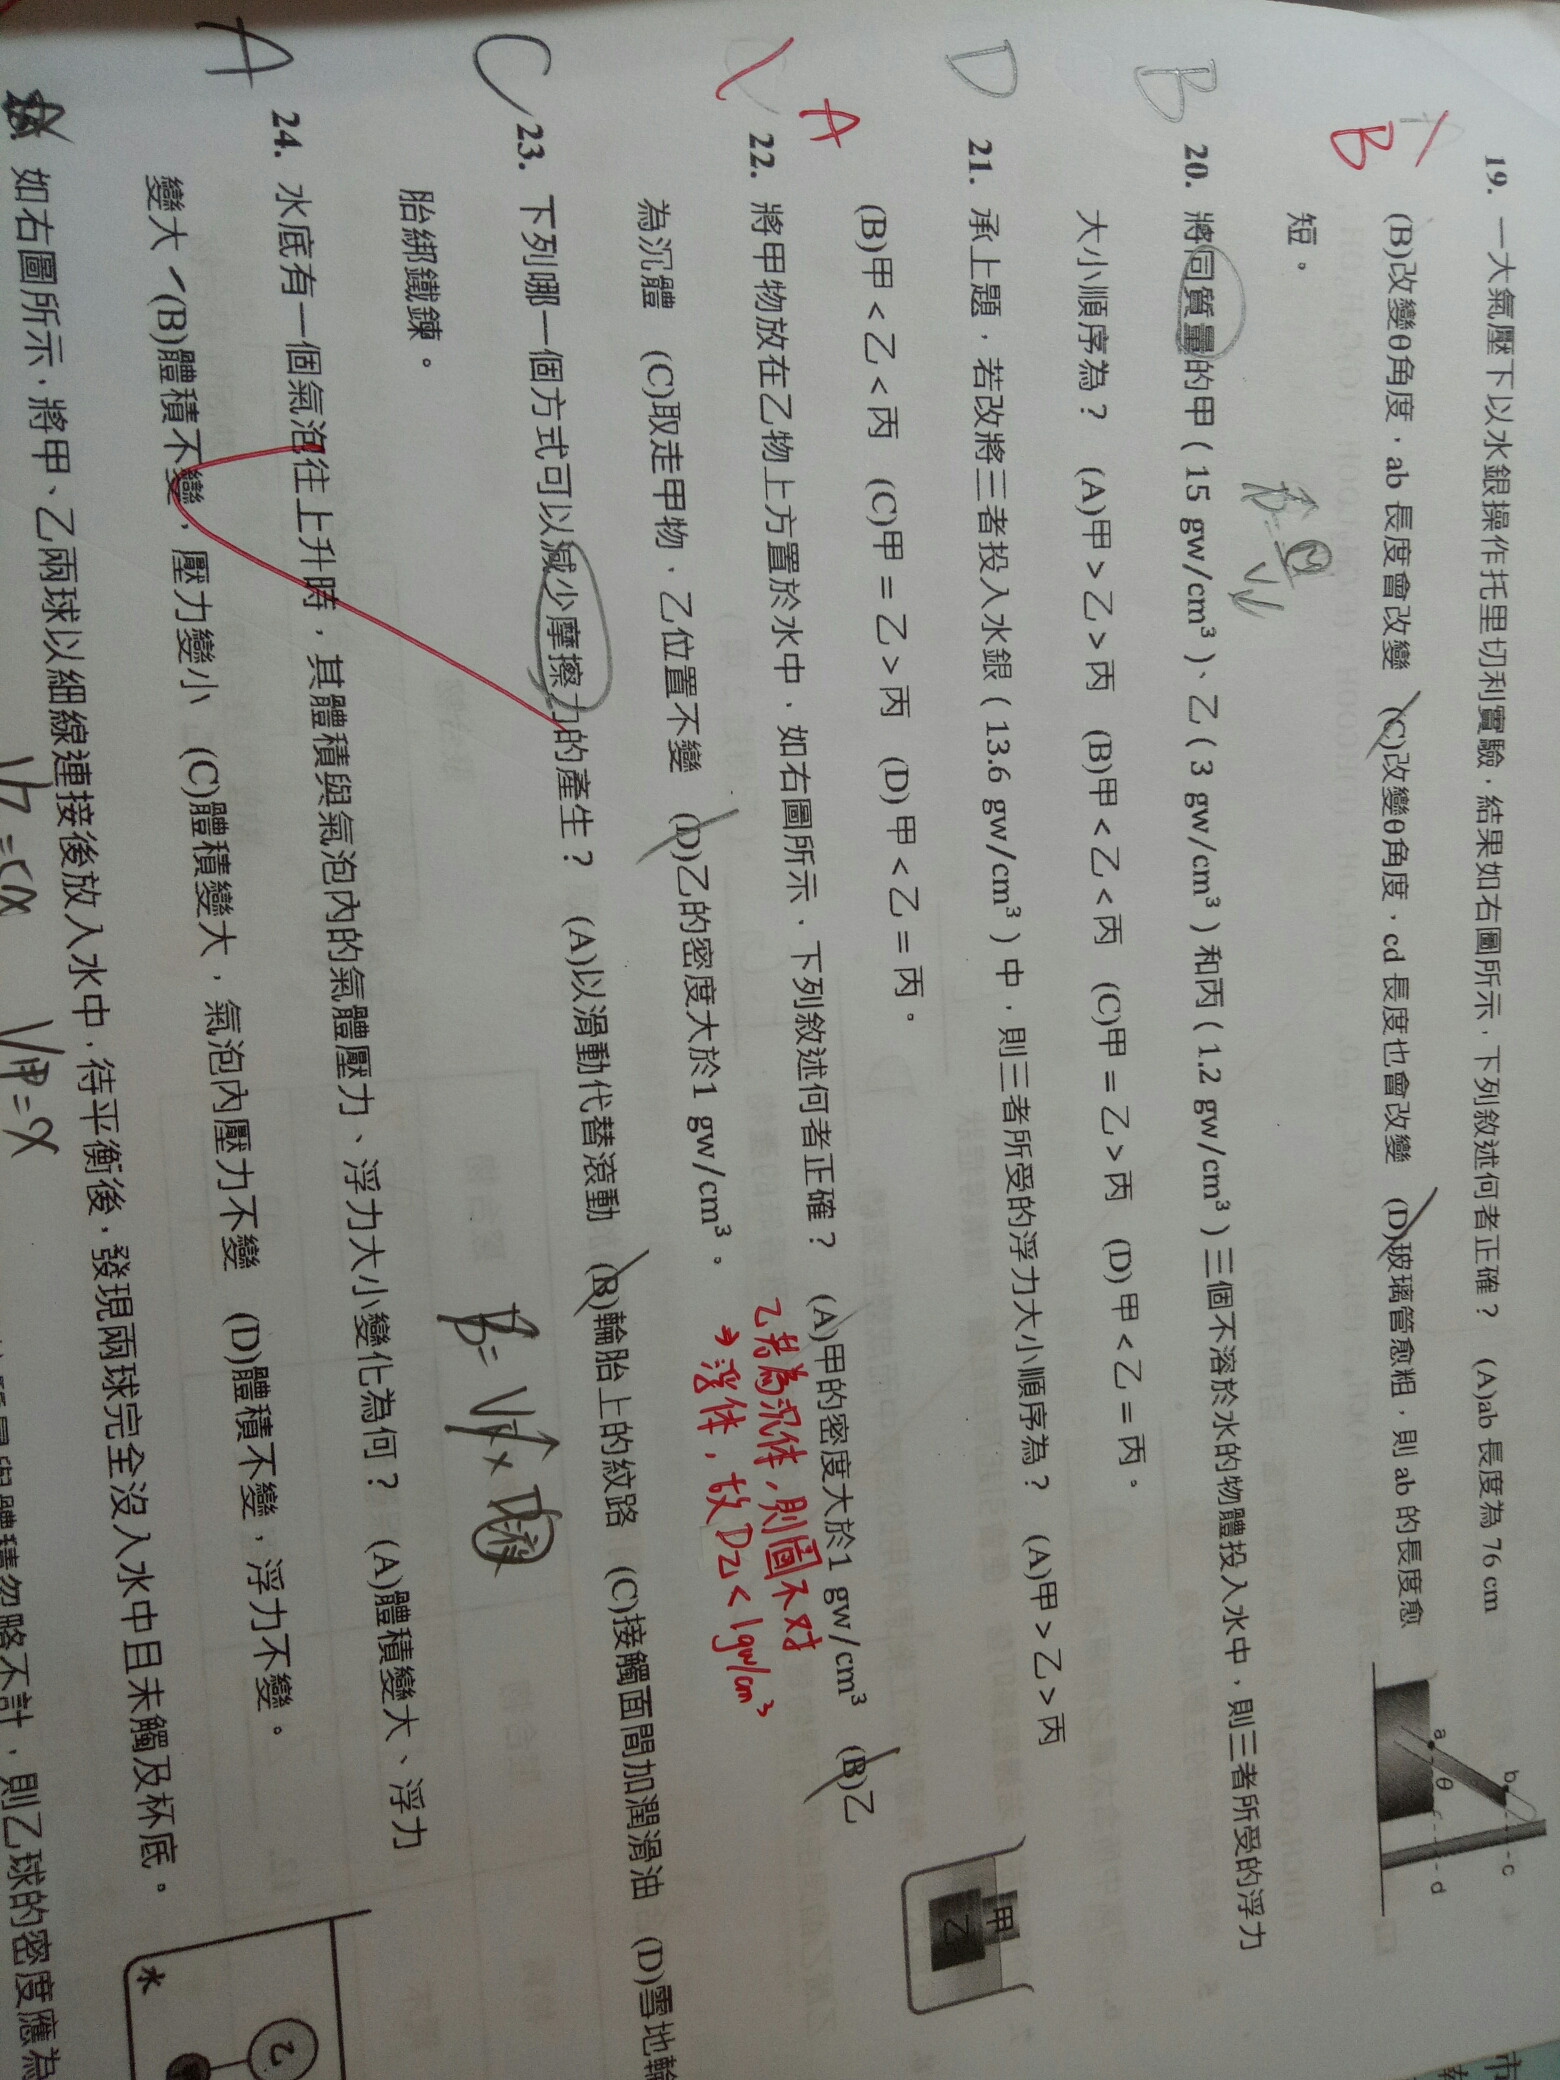 19. 一大氣壓下以水銀操作托里切利實驗，結果如右圖所示，下列敘述何者正確？ (A)ab 長度為 76 cm
(B)改變θ角度，ab 長度會改變 (C)改變θ角度，cd 長度也會改變 (D)玻璃管愈粗，則 ab 的長度愈
短。
B
a
b
c
d
θ
20. 將同質量的甲（15 gw/cm³）、乙（3 gw/cm³）和丙（1.2 gw/cm³）三個不溶於水的物體投入水中，則三者所受的浮力
大小順序為？ (A)甲＞乙＞丙 (B)甲＜乙＜丙 (C)甲＝乙＞丙 (D)甲＜乙＝丙。
B
D=M/V
21. 承上題，若改將三者投入水銀（13.6 gw/cm³）中，則三者所受的浮力大小順序為？ (A)甲＞乙＞丙
(B)甲＜乙＜丙 (C)甲＝乙＞丙 (D)甲＜乙＝丙。
D
22. 將甲物放在乙物上方置於水中，如右圖所示，下列敘述何者正確？ (A)甲的密度大於1 gw/cm³ (B)乙
為沉體 (C)取走甲物，乙位置不變 (D)乙的密度大於1 gw/cm³。
A
甲
乙
乙若為沉体，則圖不对
⇒浮体，故D乙<1gw/cm³
23. 下列哪一個方式可以減少摩擦力的產生？ (A)以滑動代替滾動 (B)輪胎上的紋路 (C)接觸面間加潤滑油 (D)雪地輪
胎綁鐵鍊。
C
B=V下×D液
24. 水底有一個氣泡往上升時，其體積與氣泡內的氣體壓力、浮力大小變化為何？ (A)體積變大、浮力
變大 (B)體積不變，壓力變小 (C)體積變大，氣泡內壓力不變 (D)體積不變，浮力不變。
A
如右圖所示，將甲、乙兩球以細線連接後放入水中，待平衡後，發現兩球完全沒入水中且未觸及杯底。
質量與體積忽略不計，則乙球的密度應為
V甲=x
水
乙
市